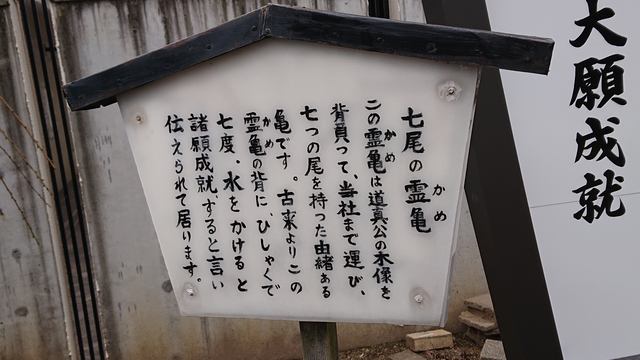 大願成就
七尾の霊亀
かめ
この霊亀は道真公の木像を
かめ
背負って、当社まで運び、
七つの尾を持った由緒ある
亀です。古来よりこの
霊亀の背に、ひしゃくで
かめ
七度、水をかけると
諸願成就すると言い
伝えられて居ります。